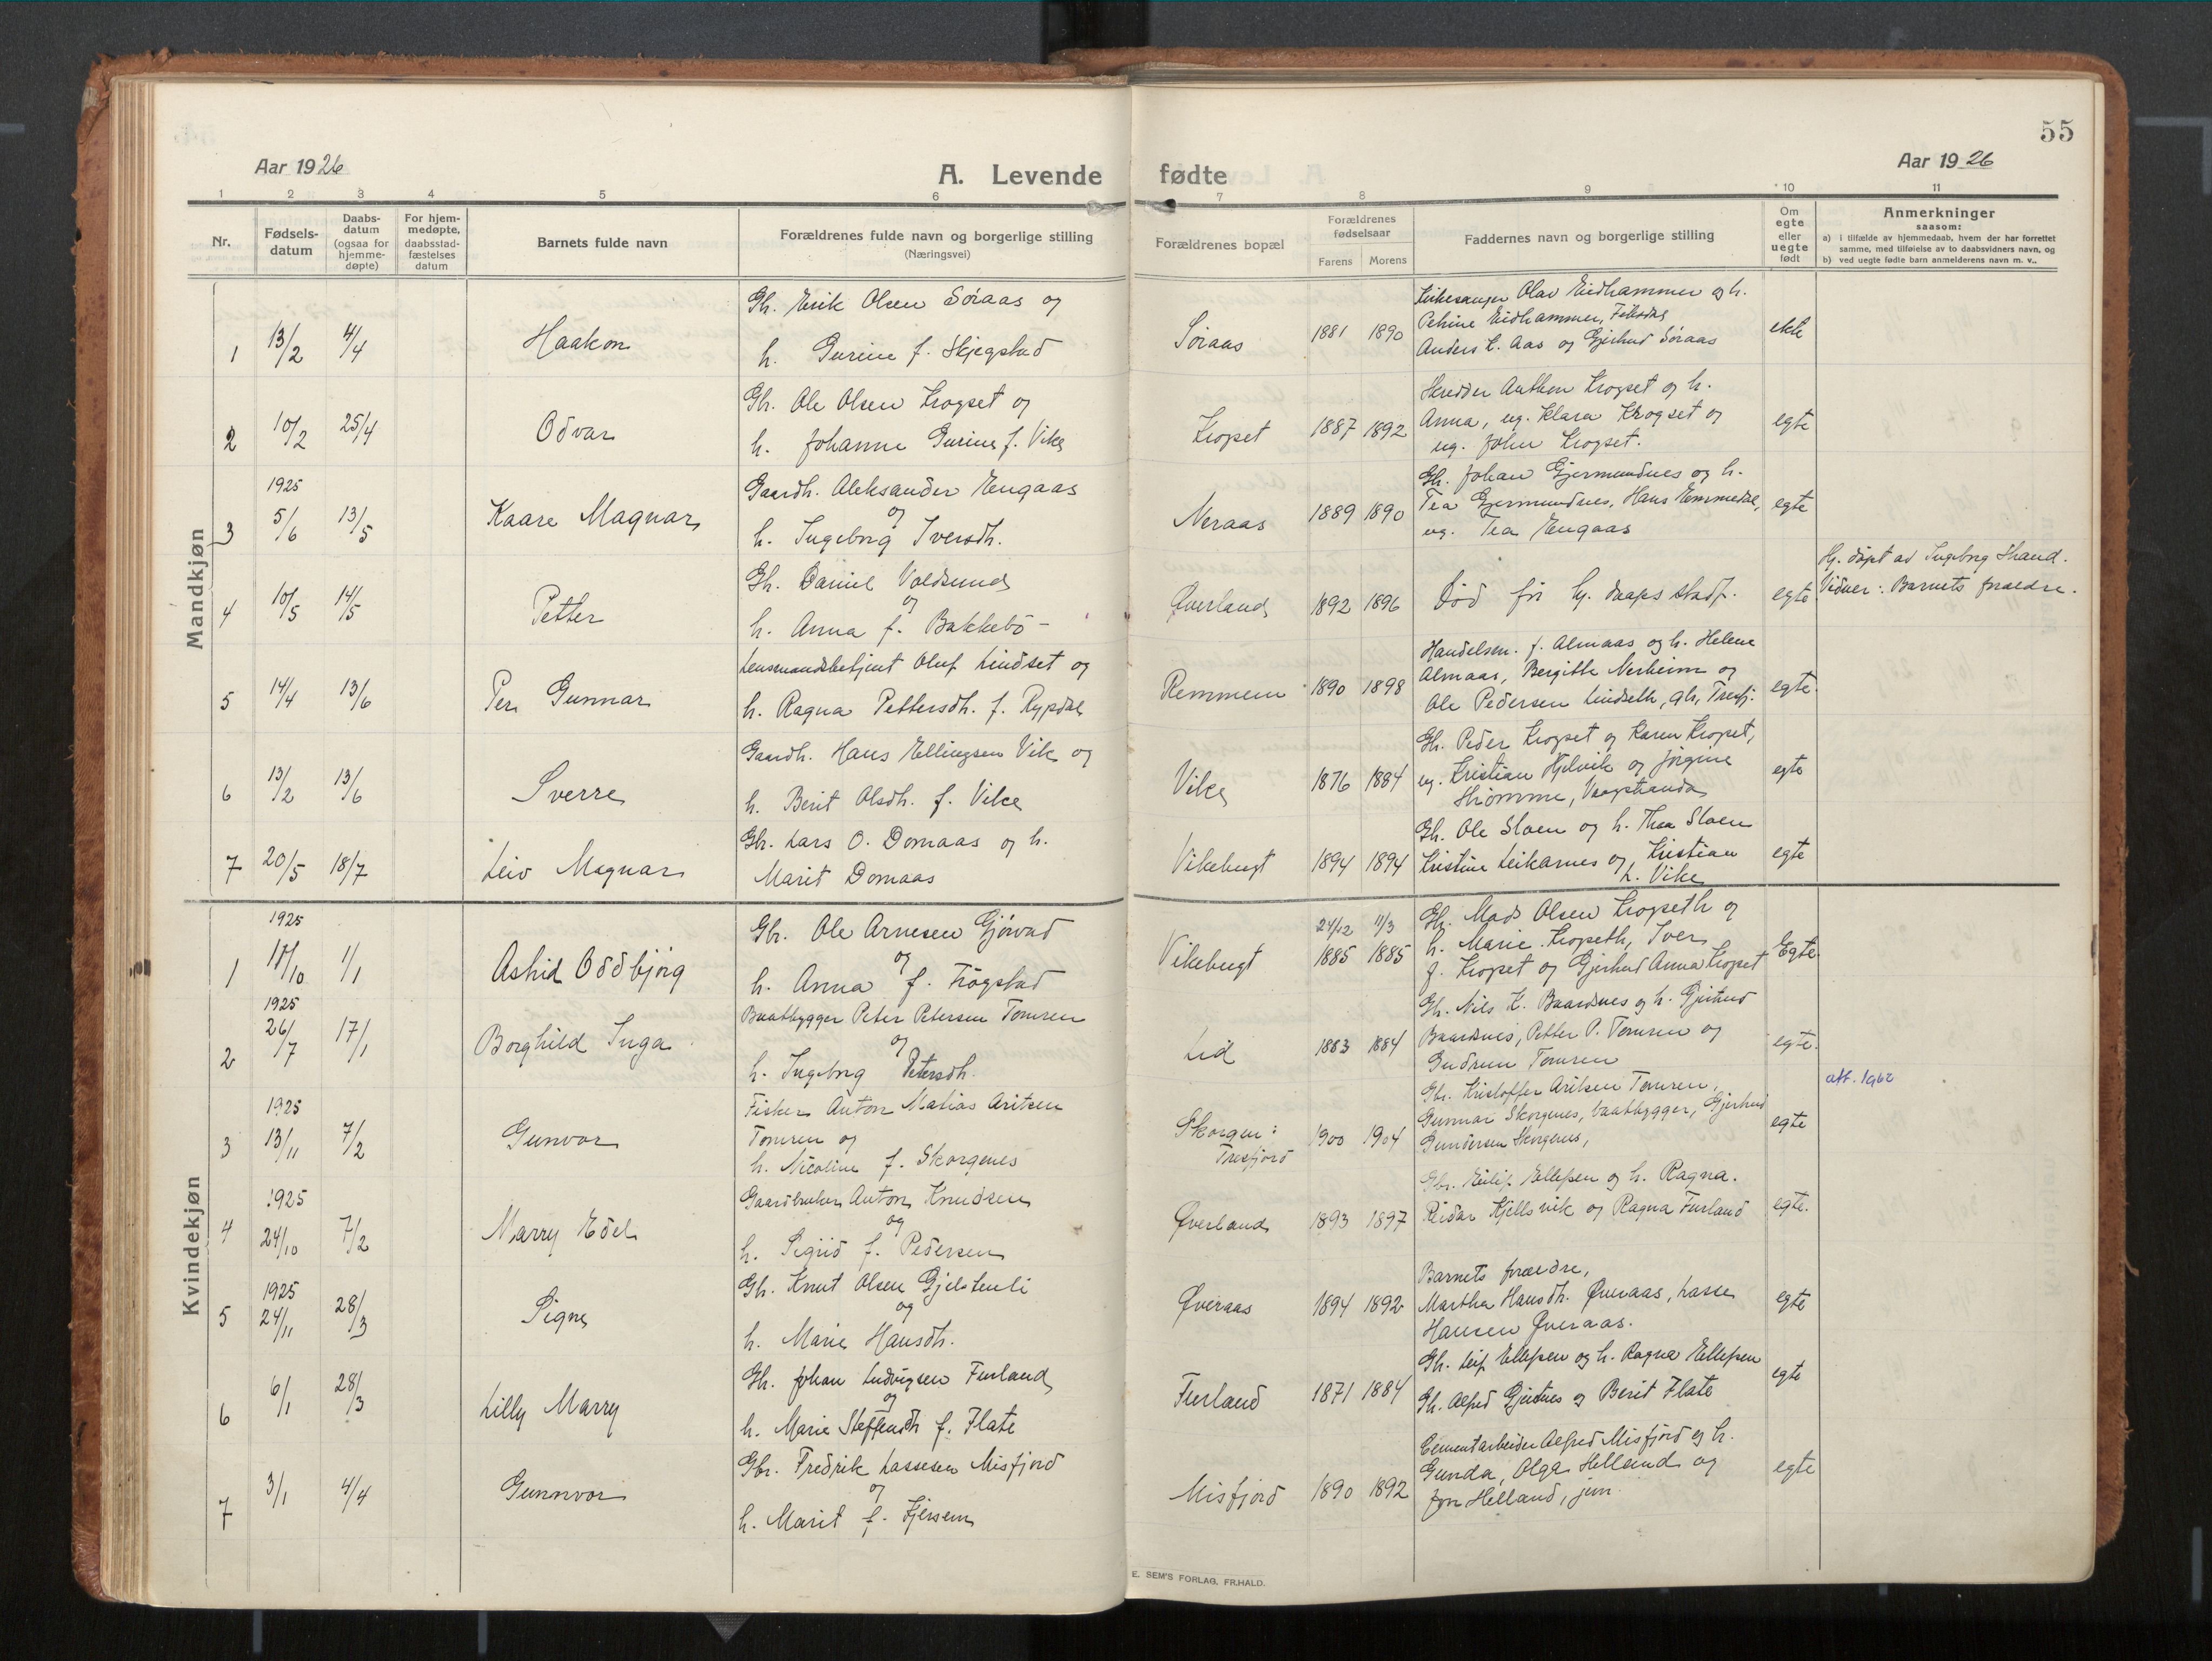 55
Aar 1926
A. Levende fødte
Aar 1926
1 2 3 4 5 6 7 8 9 10 11
Nr.
Fødsels-
datum
Daabs-
datum
(ogsaa for
hjemme-
døpte)
For hjem-
medøpte,
daabsstad-
fæstelses
datum
Barnets fulde navn
Forældrenes fulde navn og borgerlige stilling
(Næringsvei)
Forældrenes bopæl
Forældrenes
fødselsaar
Farens Morens
Faddernes navn og borgerlige stilling
Om
egte
eller
uegte
født
Anmerkninger
saasom:
a) i tilfælde av hjemmedaab, hvem der har forrettet
samme, med tilføielse av to daabsvidners navn, og
b) ved uegte fødte barn anmelderens navn m. v..
Mandkjøn
1 13/2 4/4 Haakon
Gh. Erik Olsen Søraas og
h. Gurine f. Skjegstad
Søraas 1881 1890
Kirkesanger Olav Eidhammer og h.
Petrine Eidhammer, Fiksdal
Anders L. Aas og Gjertrud Søraas
ekte
2 10/2 25/4 Odvar
Gh. Ole Olsen Krogset og
h. Johanne Gurine f. Vike
Kropset 1887 1892
Skredder Anthon Kropset og h.
Anna, ug. Klara Krogset og
ug. John Kropset.
egte
1925
3 5/6 13/5 Kaare Magnar
Gaardh. Aleksander Engaas
og
h. Ingeborg Iversdh.
Neraas 1889 1890
Gh. Johan Gjermundnes og h.
Tea Gjermundnes, Hans Hemmedal,
ug. Tea Engaas
egte
4 10/5 14/5 Petter
Gh. Daniel Voldsund
og
h. Anna f. Bakkebø -
Øverland 1892 1896
Død før hj. daaps stadf.
egte
Hj. døpt av Ingeborg Strand.
Vidner: Barnets foreldre.
5 14/4 13/6 Per Gunnar
Lensmandsbetjent Oluf Lindset og
h. Ragna Pettersdh. f. Rypdal
Remmem 1890 1898
Handelsm. J. Almaas og h. Helene
Almaas, Bergitte Nerheim og
Ole Pedersen Lindseth, gh, Tresfj.
egte.
6 13/2 13/6 Sverre
Gaardh. Hans Ellingsen Vik og
h. Berit Olsdh. f. Vike
Vike 1876 1884
Gh. Peder Kropset og Karen Kropset,
ug. Kristian Hjelvik og Jørgine
Strømme, Vaagstranda
egte
7 20/5 18/7 Leiv Magnar
Gbr. Lars O. Domaas og h.
Marit Domaas
Vikebugt 1894 1894
Gh. Ole Sloen og h. Thea Sloen
Kristine Leikarnes og Kristian
L. Vike
egte
Kvindekjøn
1925
1 17/10 1/1 Astrid Oddbjörg
Gbr. Ole Arnesen Gjørvad
og
h. Anna f. Frøgstad
Vikebugt
24/12 11/3
1885 1885
Gh. Mads Olsen Kropseth og
h. Marie Kropseth, Iver
J. Kropset og Gjertrud Anna Kropset
Egte.
1925
2 26/7 17/1 Borghild Inga
Baatbygger Peter Petersen Tomren
og
h. Ingeborg Petersdh.
Lid 1883 1884
Gh. Nils K. Baardnes og h. Gjertrud
Baardnes, Petter P. Tomren og
Gudrun Tomren
egte.
1925
3 13/11 7/2 Gunvor
Fisker Anton Matias Aritsen
Tomren og
h. Nicoline f. Skorgenes
Skorgen:
Tresfjord
1900 1904
Gbr. Kristoffer Aritsen Tomren,
Gunnar Skorgenes, baatbygger, Gjertrud
Gundersen Skorgenes,
egte
att. 1962
1925
4 24/10 7/2 Marry Edel
Gaardbruker Anton Knudsen
og
h. Sigrid f. Pedersen
Øverland 1893 1897
Gbr. Eilif Ellefsen og h. Ragna.
Reidar Kjellsvik og Ragna Furland
egte.
1925
5 24/11 28/3 Signe
Gh. Knut Olsen Gjelstenli
og
h. Marie Hansdh.
Øveraas 1894 1892
Barnets foreldre,
Martha Hansdh. Øveraas, Lasse
Hansen Øveraas.
egte
6 6/1 28/3 Lilly Marry
Gh. Johan Ludvigsen Furland
og
h. Marie Steffensdh f. Flate
Furland 1871 1884
Gh. Leif Ellefsen og h. Ragna Ellefsen
Gh. Alfred Gjelstnes og Berit Flate
egte
7 3/1 4/4 Gunnvor
Gbr. Fredrik Lassesen Misfjord
og
h. Marit f. Fjersem
Misfjord 1890 1892
Cementarbeider Alfred Misfjord og h.
Gunda, Olga Helland og
Jon Helland, jun.
egte
E. SEM'S FORLAG, FR.HALD.